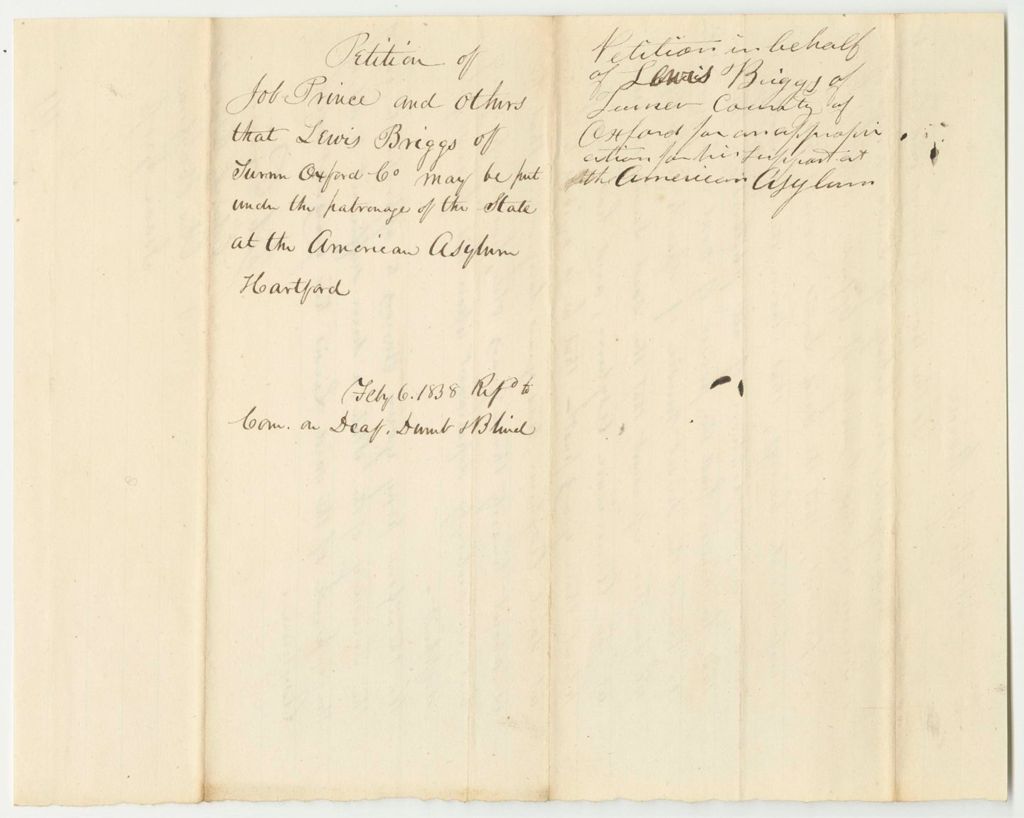 Petition of
Job Prince and others
that Lewis Briggs of
Turner Oxford Co may be put
under the patronage of the State
at the American Asylum
Hartford
Feby 6. 1838 Refd to
Com. on Deaf. Dumb & Blind
Petition in behalf
of Lewis Briggs of
Turner County of
Oxford for an appropri
ation for his support at
the American Asylum